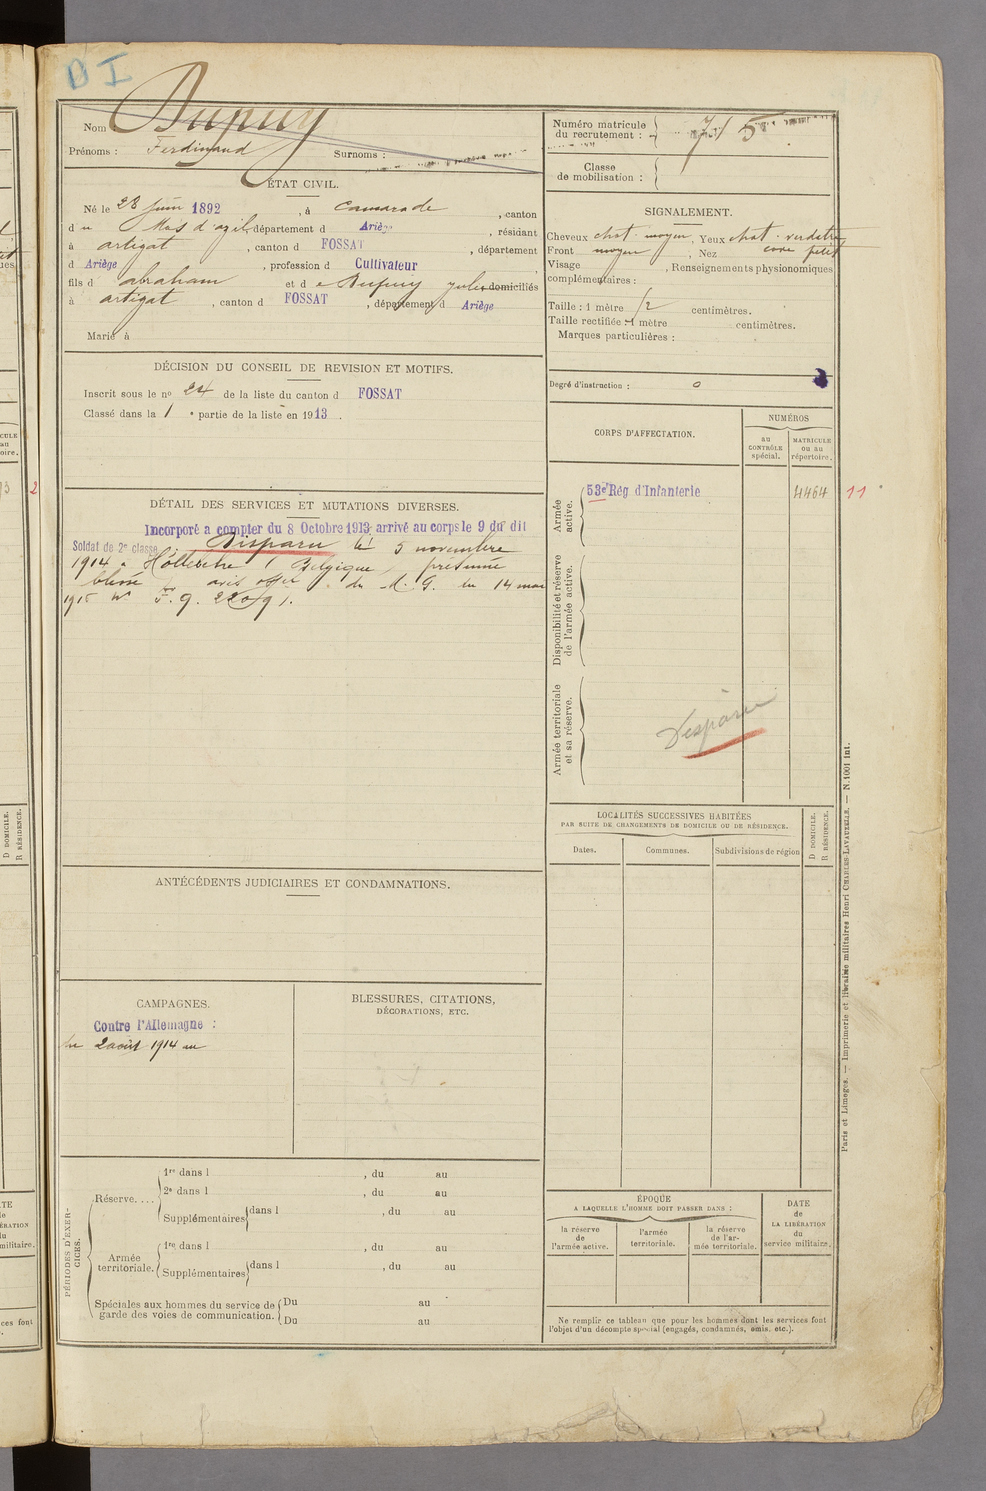 D I
Nom Dupuy
Prénoms : Ferdinand Surnoms :
ÉTAT CIVIL.
Né le 28 juin 1892, à Camarade, canton
du Mas d'azil, département d Ariège, résidant
à artigat, canton d FOSSAT, département
d Ariège, profession d Cultivateur
fils d abraham et de Dupuy domiciliés
à artigat, canton d FOSSAT, département d Ariège
Marié à
DÉCISION DU CONSEIL DE REVISION ET MOTIFS.
Inscrit sous le no 24 de la liste du canton d FOSSAT
Classé dans la 1 e partie de la liste en 1913.
DÉTAIL DES SERVICES ET MUTATIONS DIVERSES.
Incorporé a compter du 8 Octobre 1913 arrivé au corps le 9 du dit
Soldat de 2e classe. Disparu le 5 novembre
1914 à Hollebeke (Belgique) présumé
blessé avis offel du M. G. du 14 mai
1915 No
ANTÉCÉDENTS JUDICIAIRES ET CONDAMNATIONS.
CAMPAGNES.
Contre l'Allemagne :
du 2 août 1914 au
BLESSURES, CITATIONS,
DÉCORATIONS, ETC.
PÉRIODES D'EXERCICES.
Réserve....
1re dans l , du au
2e dans l , du au
Supplémentaires dans l , du au
Armée territoriale.
1re dans l , du au
Supplémentaires dans l , du au
Spéciales aux hommes du service de garde des voies de communication.
Du au
Du au
Numéro matricule
du recrutement :
Classe
de mobilisation :
SIGNALEMENT.
Cheveux chat moyen, Yeux chat verdatre
Front moyen, Nez cave petit
Visage , Renseignements physionomiques
complémentaires :
Taille : 1 mètre centimètres.
Taille rectifiée : 1 mètre centimètres.
Marques particulières :
Degré d'instruction : 0
CORPS D'AFFECTATION.
NUMÉROS
au CONTRÔLE spécial.
MATRICULE ou au répertoire.
Armée active.
53e Rég d'Infanterie 4464 11
Disponibilité et réserve de l'armée active.
Armée territoriale et sa réserve.
Disparu
LOCALITÉS SUCCESSIVES HABITÉES
PAR SUITE DE CHANGEMENTS DE DOMICILE OU DE RÉSIDENCE.
Dates. Communes. Subdivisions de région
D DOMICILE.
R RÉSIDENCE.
ÉPOQUE
A LAQUELLE L'HOMME DOIT PASSER DANS :
la réserve de l'armée active.
l'armée territoriale.
la réserve de l'armée territoriale.
DATE de LA LIBÉRATION du service militaire.
Ne remplir ce tableau que pour les hommes dont les services font
l'objet d'un décompte spécial (engagés, condamnés, omis, etc.).
Paris et Limoges. — Imprimerie et librairie militaires Henri CHARLES-LAVAUZELLE. — N. 1001 int.